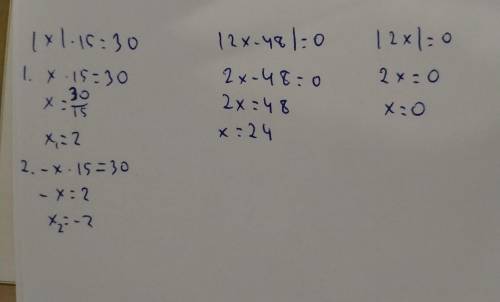 |x|·15=30
1. x·15=30
x=30/15
x₁=2
2. -x·15=30
-x=2
x₂=-2
|2x-48|=0
2x-48=0
2x=48
x=24
|2x|=0
2x=0
x=0